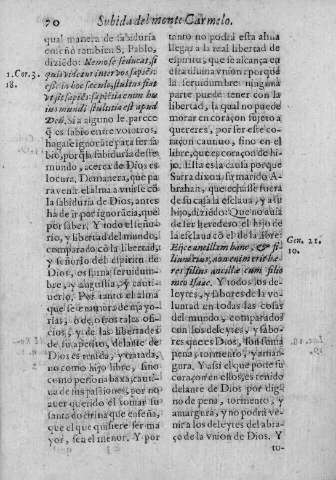 70 Subida del monte Carmelo.
qual manera de sabiduria
enseñò tambien S. Pablo,
diziẽdo: Nemo se seducat, si
quis videtur inter vos sapiẽs
esse in hoc sæculo, stultus fiat
vt sit sapiẽs: sapiẽtia enim hu
ius mundi stultitia est apud
Deũ. Si alguno le parece
q̃ es sabio entre vosotros,
hagase ignorãte y ara ser sa
bio, porq̃ la sabiduria deste
mundo, acerca de Dios es
locura. Demanera, que pa
ra venir el alma a vnirse cõ
la sabiduria de Dios, antes
ha de ir por ignorãcia, que
por saber. Y todo el señorio,
y libertad del mundo,
comparado cõ la libertad,
y señorio del espiritu de
Dios, es suma seruidumbre,
y angustia, y cautiuerio.
Por tanto el alma
que se enamora de mayorias,
ò de otros tales oficios,
y de las libertades
de su apetito, delante de
Dios es tenida, y tratada,
no como hijo libre, sino
como persona baxa, cautiua
de sus pasiones, por no
auer querido el tomar su
santa doctrina que enseña,
que el que quisiere ser mayor,
sea el menor. Y por
1. Cor. 3.
18.
tanto no podrà esta alma
llegar a la real libertad de
espiritu, que se alcança en
esta diuina vnion: porque
la seruidumbre ninguna
parte puede tener con la
libertad, la qual no puede
morar en coraçon sujeto a
quereres, por ser este coraçon
cautiuo, sino en el
libre, que es coraçon de hijo.
Esta es la causa porque
Sarra dixo a su marido Abrahan,
que echasse fuera
de su casa la esclaua, y a su
hijo, diziẽdo: Que no auia
de ser heredero el hijo de
la esclaua cõ el de la libre:
Eijce ancillam hanc, & filium
eius, non enim erit heres
filius ancillæ cum filio
meo Isaac. Y todos los deleytes,
y sabores de la voluntad
en todas las cosas
del mundo, comparados
con los deleytes, y sabores
que es Dios, son suma
pena, tormento, y amargura.
Y assi el que pone su
coraçon en ellos, es tenido
delante de Dios por digno
de pena, tormento, y
amargura, y no podrà venir
a los deleytes del abraço
de la vnion de Dios. Y
Gen. 21.
10.
to-